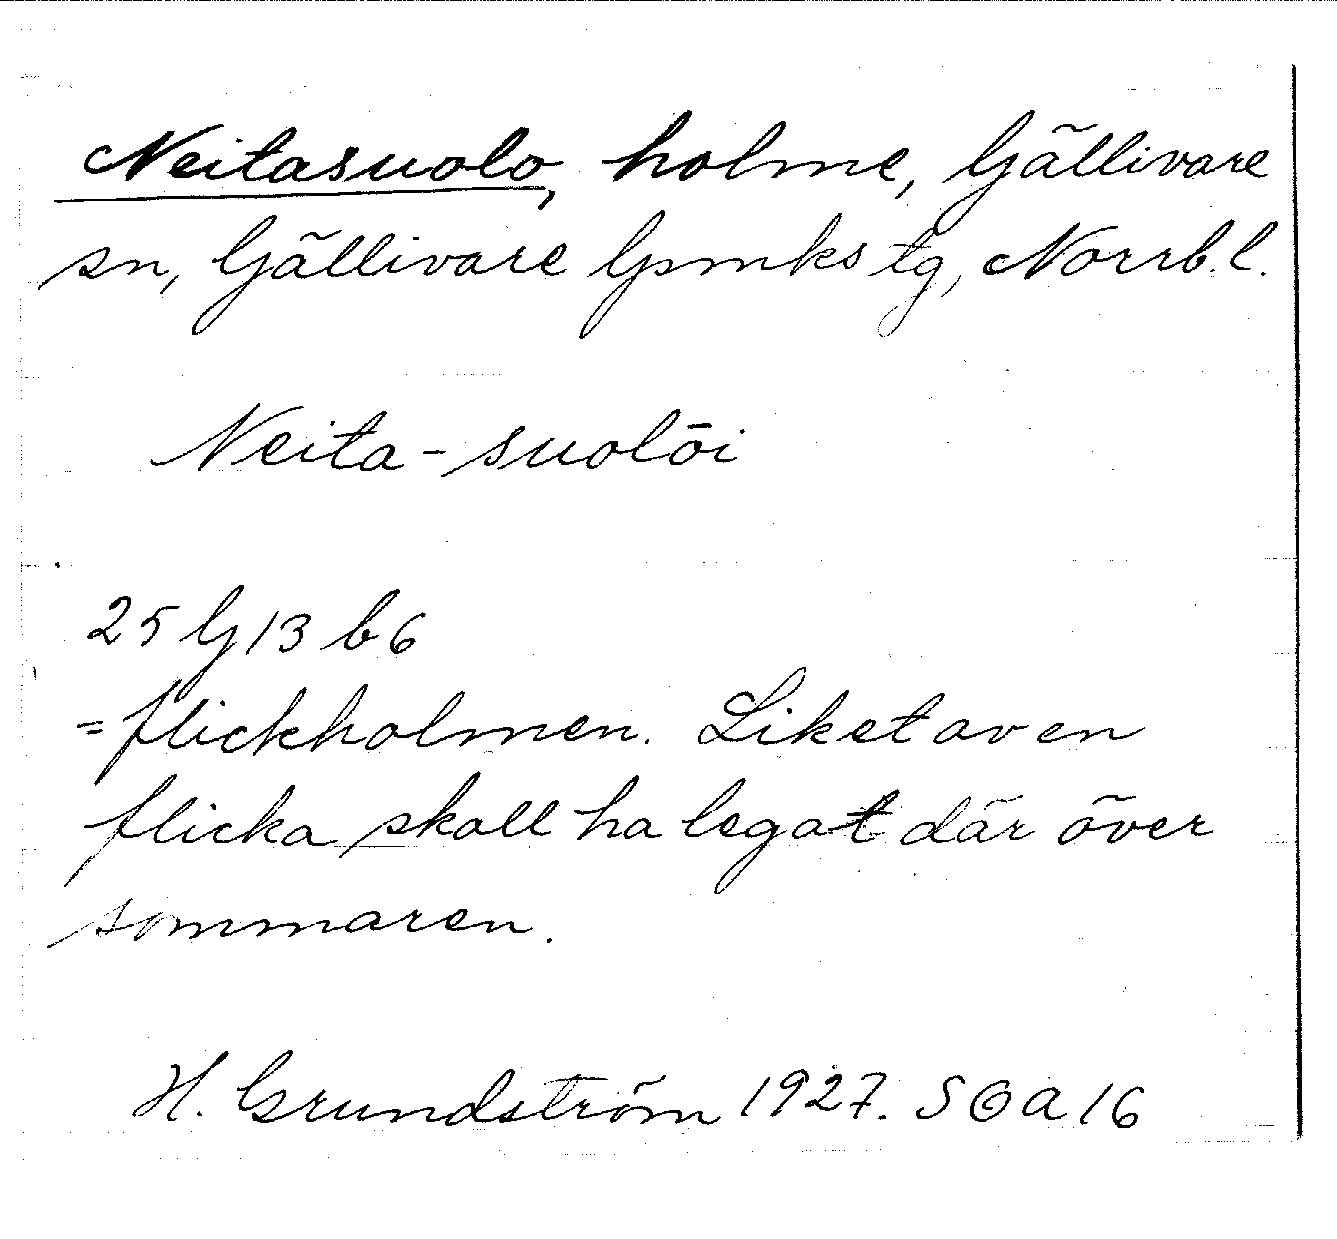 Neitasuolo, holme, Gällivare
sn, Gällivare lpmks tg, Norrb. l.
Neita-suolōi
25 G 13 b 6
= flickholmen. Liket av en
flicka skall ha legat där över
sommaren.
H. Grundström 1927. SOA 16